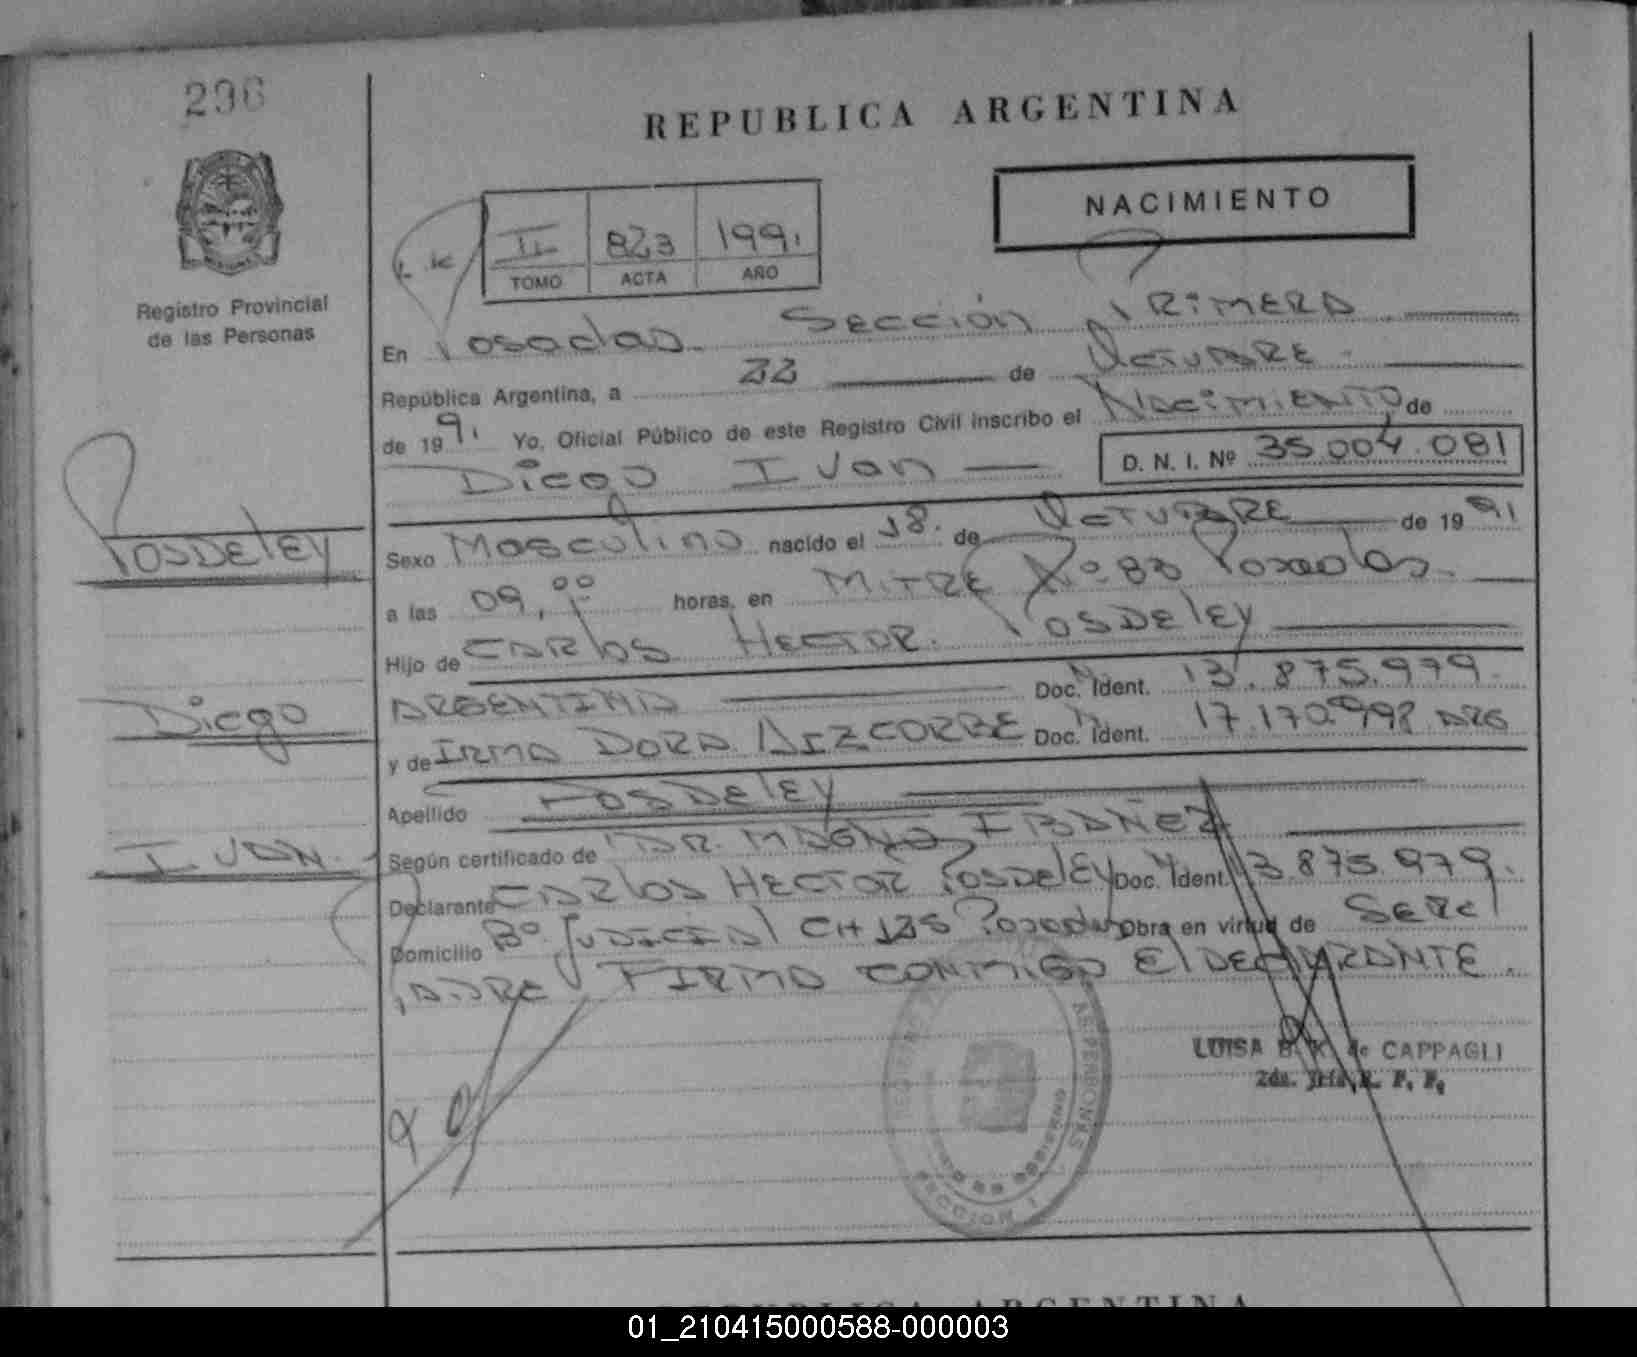 296
REPUBLICA ARGENTINA
NACIMIENTO
II 823 1991
TOMO ACTA AÑO
Registro Provincial
de las Personas
En Posadas Sección Primera
República Argentina, a 22 de Octubre
de 1991 Yo, Oficial Público de este Registro Civil inscribo el Nacimiento de
Diego Ivan D. N. I. Nº 35.004.081
Posdeley
Sexo Masculino nacido el 18 de Octubre de 1991
a las 09,00 horas, en Mitre Nº 83 Posadas
Hijo de Carlos Hector Posdeley
Argentina Doc. Ident. 13.875.979
Diego
y de Irma Dora Aizcorbe Doc. Ident. 17.170.998 ARG
Apellido Posdeley
Ivan
Según certificado de DR. Magno Ibañez
Declarante Carlos Hector Posdeley Doc. Ident. 13.875.979
Domicilio Bº Judicial CH 125 Posadas Obra en virtud de ser el
Padre Firma conmigo el declarante.
LUISA B. K. de CAPPAGLI
2da. Jefa R. P. P.
REPUBLICA ARGENTINA
01_210415000588-000003